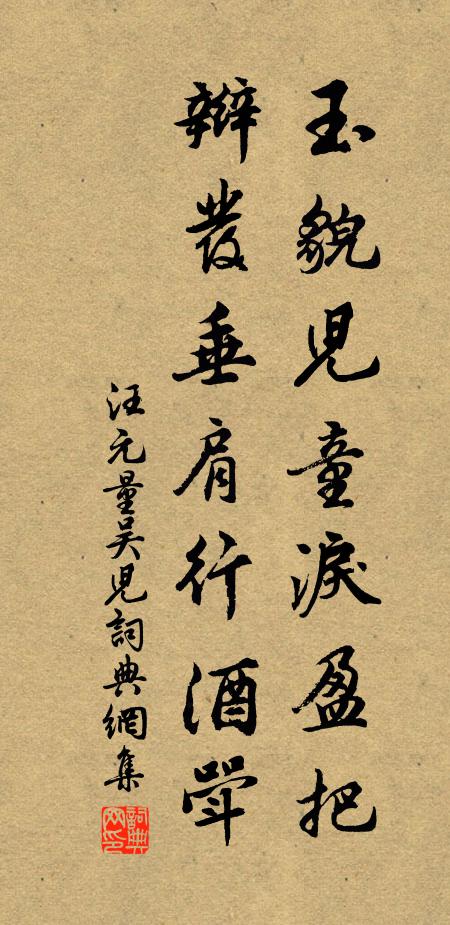 玉貌兒童淚盈把
辮發垂肩行酒斝
汪元量吳兒詞典網集
詞典網印